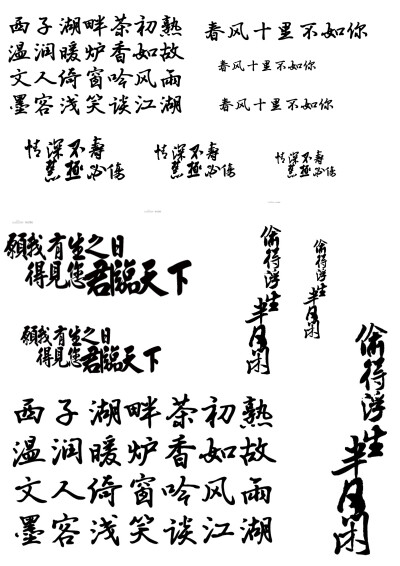 西子湖畔茶初熟
温润暖炉香如故
文人倚窗吟风雨
墨客浅笑谈江湖
春风十里不如你
春风十里不如你
春风十里不如你
情深不寿
慧极必伤
情深不寿
慧极必伤
情深不寿
慧极必伤
願我有生之日
得見您君臨天下
願我有生之日
得見您君臨天下
偷得浮生半日闲
偷得浮生半日闲
偷得浮生半日闲
西子湖畔茶初熟
温润暖炉香如故
文人倚窗吟风雨
墨客浅笑谈江湖